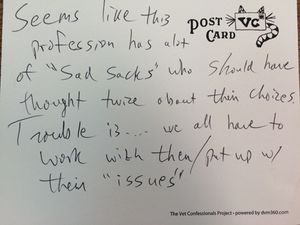 Seems like this
POST
CARD
VC
profession has alot
of "Sad Sacks" who should have
thought twice about their choices.
Trouble is.... we all have to
work with then/put up w/
their "issues"
The Vet Confessionals Project • powered by dvm360.com